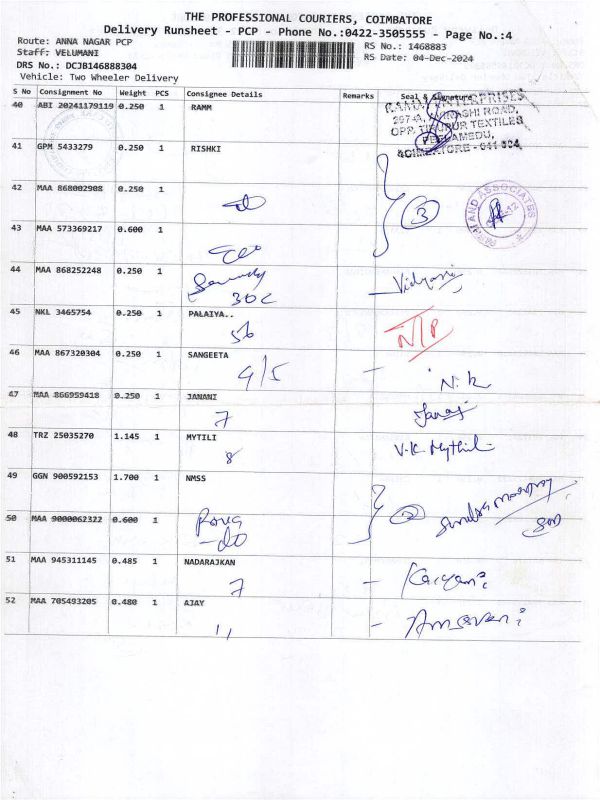 THE PROFESSIONAL COURIERS, COIMBATORE
Delivery Runsheet - PCP - Phone No.:0422-3505555 - Page No.:4
Route: ANNA NAGAR PCP
Staff: VELUMANI
DRS No.: DCJB146888304
Vehicle: Two Wheeler Delivery
RS No.: 1468883
RS Date: 04-Dec-2024
S No Consignment No Weight PCS Consignee Details Remarks Seal & Signature
40 ABI 20241179119 0.250 1 RAMM
OPP. TIRUPUR TEXTILES
41 GPM 5433279 0.250 1 RISHKI
42 MAA 868002908 0.250 1
3
ASSOCIATES
43 MAA 573369217 0.600 1
44 MAA 868252248 0.250 1
302
45 NKL 3465754 0.250 1 PALAIYA..
56 N/P
46 MAA 867320304 0.250 1 SANGEETA
4/5 N.K
47 MAA 866959418 0.250 1 JANANI
7
48 TRZ 25035270 1.145 1 MYTILI
8 V.K. Mythili
49 GGN 900592153 1.700 1 NMSS
50 MAA 9000062322 0.600 1
2
51 MAA 945311145 0.485 1 NADARAJKAN
7
52 MAA 705493205 0.480 1 AJAY
11